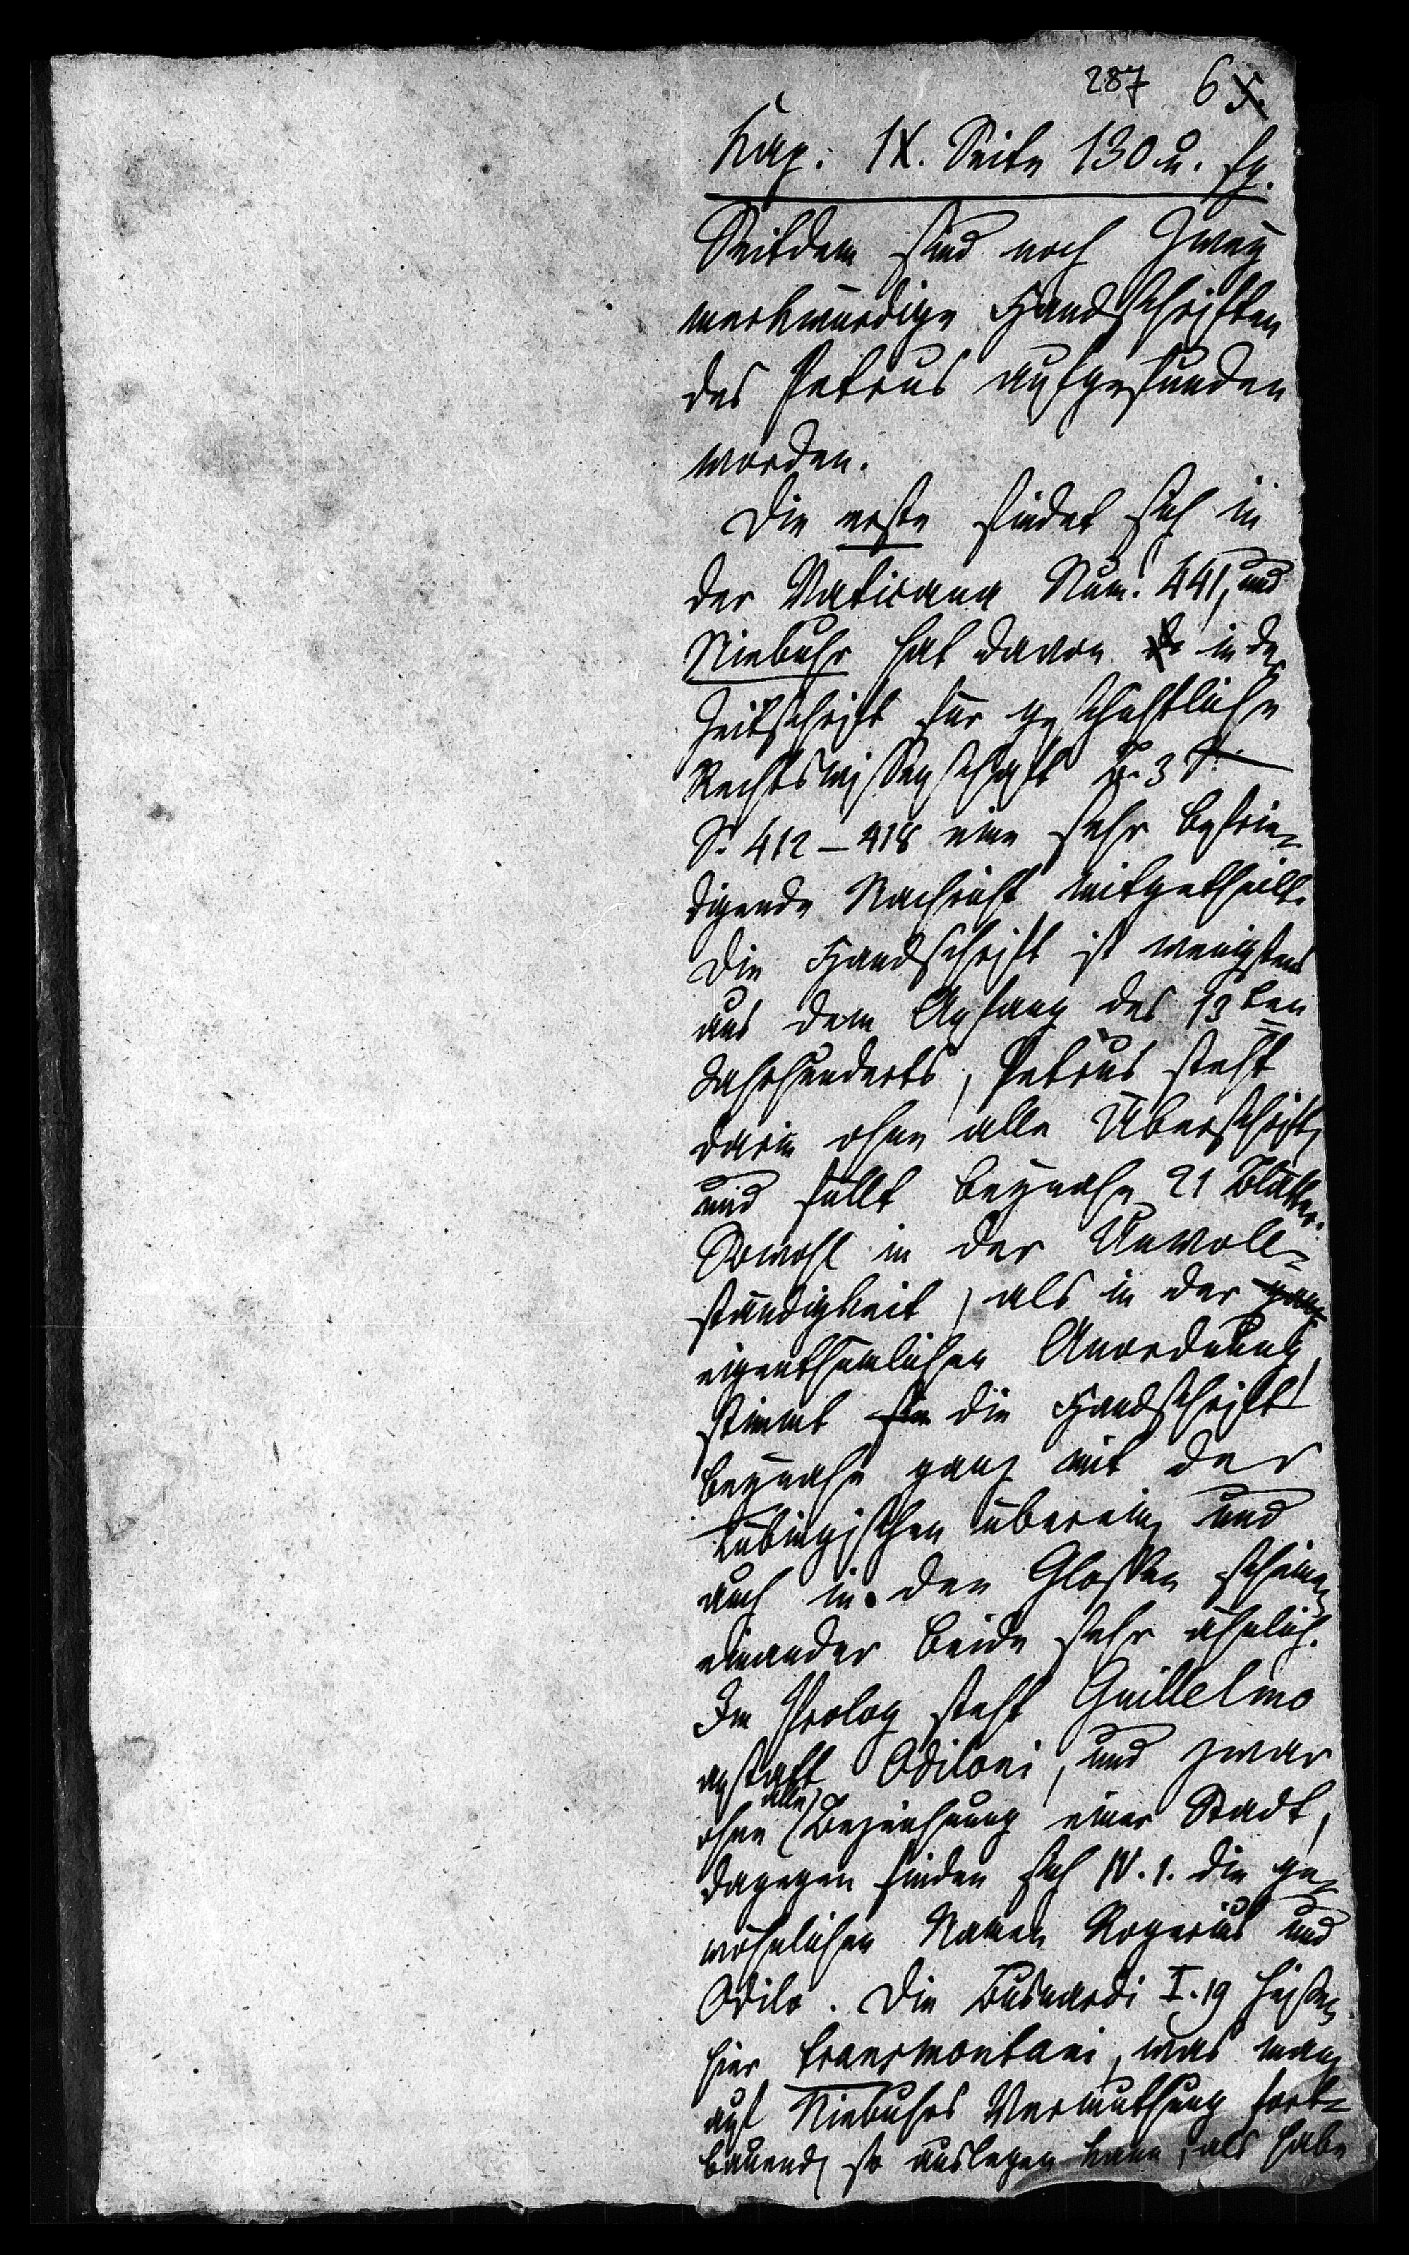 287 6
Kap. IX. Seite 130 u. fg.
Seitdem sind noch zwey
merkwürdige Handschriften
des Petrus aufgefunden
worden.
Die erste findet sich in
der Vaticana Num. 441, und
Niebuhr hat davon in der
Zeitschrift für geschichtliche
Rechtswissenschaft B. 3
S. 412 – 418 eine sehr befrie-
digende Nachricht mitgetheilt.
Die Handschrift ist wenigstens
aus dem Anfang des 13ten
Jahrhunderts, Petrus steht
darin ohne alle Überschrift,
und füllt beynahe 21 Blätter.
Sowohl in der Unvoll-
ständigkeit, als in der
eigenthümlichen Anordnung,
stimmt die Handschrift
beynahe ganz mit der
Tübingischen überein, und
auch in den Glossen scheinen
einander beide sehr ähnlich.
Im Prolog steht Guillelmo
anstatt Odiloni, und zwar
ohne alle Bezeichnung einer Stadt,
dagegen finden sich IV. 1. die ge-
wöhnlichen Namen Rogerius und
Odilo. Die Busnardi I. 19 heißen
hier transmontani, was man
auf Niebuhrs Vermuthung fort-
bauend so auslegen kann, als habe